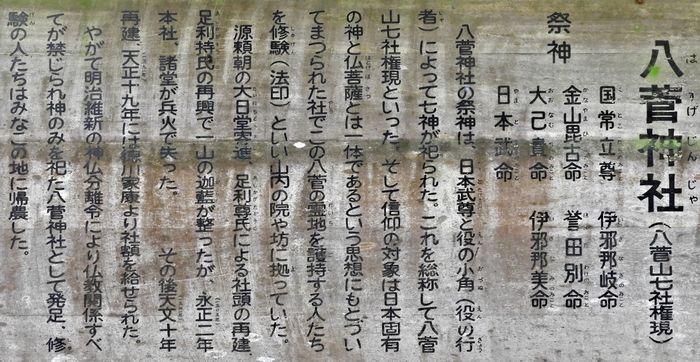 八菅神社（八菅山七社権現）
はすげじんじゃ
祭神
国常立尊　伊邪那岐命
金山毘古命　誉田別命
大己貴命　伊邪那美命
日本武命
八菅神社の祭神は、日本武尊と役の小角（役の行
者）によって七神が祀られた。これを総称して八菅
山七社権現といった。そして信仰の対象は日本固有
の神と仏菩薩とは一体であるという思想にもとづい
てまつられた社でこの八菅の霊地を護持する人たち
を修験（法印）といい山内の院や坊に拠っていた。
源頼朝の大日堂寄進、足利尊氏による社頭の再建、
足利持氏の再興で一山の迦藍が整ったが、永正二年
本社、諸堂が兵火で失った。　その後天文十年
再建、天正十九年には徳川家康より社領を給せられた。
やがて明治維新の神仏分離令により仏教関係すべ
てが禁じられ神のみを祀た八菅神社として発足、修
験の人たちはみなこの地に帰農した。